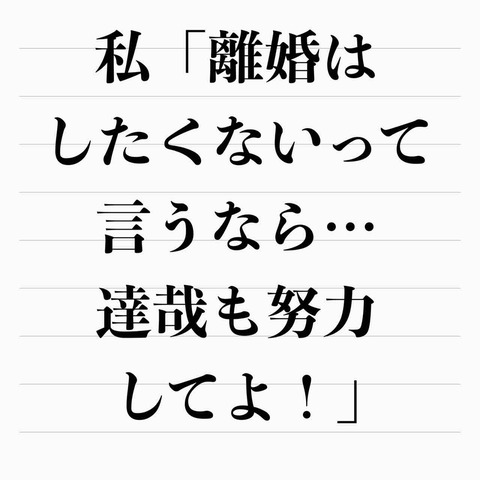 私「離婚は
したくないって
言うなら…
達哉も努力
してよ！」